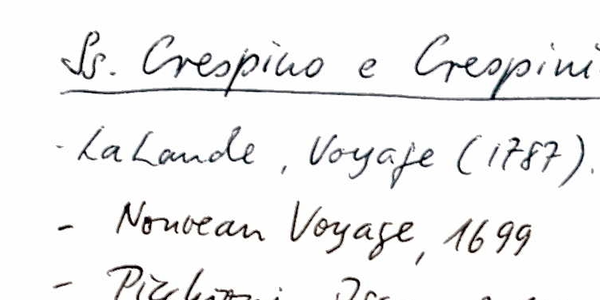 Ss. Crespino e Crespini
- LaLande, Voyage (1787).
- Nouveau Voyage, 1699
-